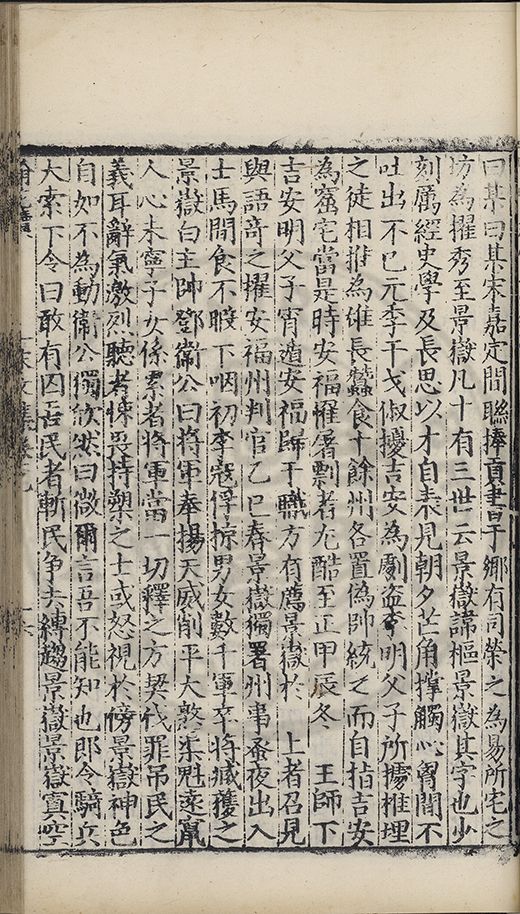 曰某曰某宋嘉定間聯捧貢書于鄉有司榮之為易所宅之
坊為擢秀至景嶽凡十有三世云景嶽諱樞景嶽其字也少
刻厲經史學及長思以才自表見朝夕芒角撐觸心胷間不
吐出不已元季干戈俶擾吉安為劇盜李明父子所據椎埋
之徒相推為雄長蠶食十餘州各置偽帥統之而自指吉安
為窟宅當是時安福罹剽者尤酷至正甲辰冬 王師下
吉安明父子宵遁安福歸于職方有薦景嶽於 上者召見
與語奇之擢安福州判官乙巳春景嶽獨署州事蚤夜出入
士馬間食不暇下咽初李寇俘掠男女數千軍卒將臧獲之
景嶽白主帥鄧衛公曰將軍奉揚天威削平大憝渠魁遠竄
人心未寧子女係纍者將軍當一切釋之方契伐罪吊民之
義耳辭氣激烈聽者悚畏持槊之士或怒視於傍景嶽神色
自如不為動衛公獨欣然曰微爾言吾不能知也即令騎兵
大索下令曰敢有囚吉民者斬民爭去縛趨景嶽景嶽寘空